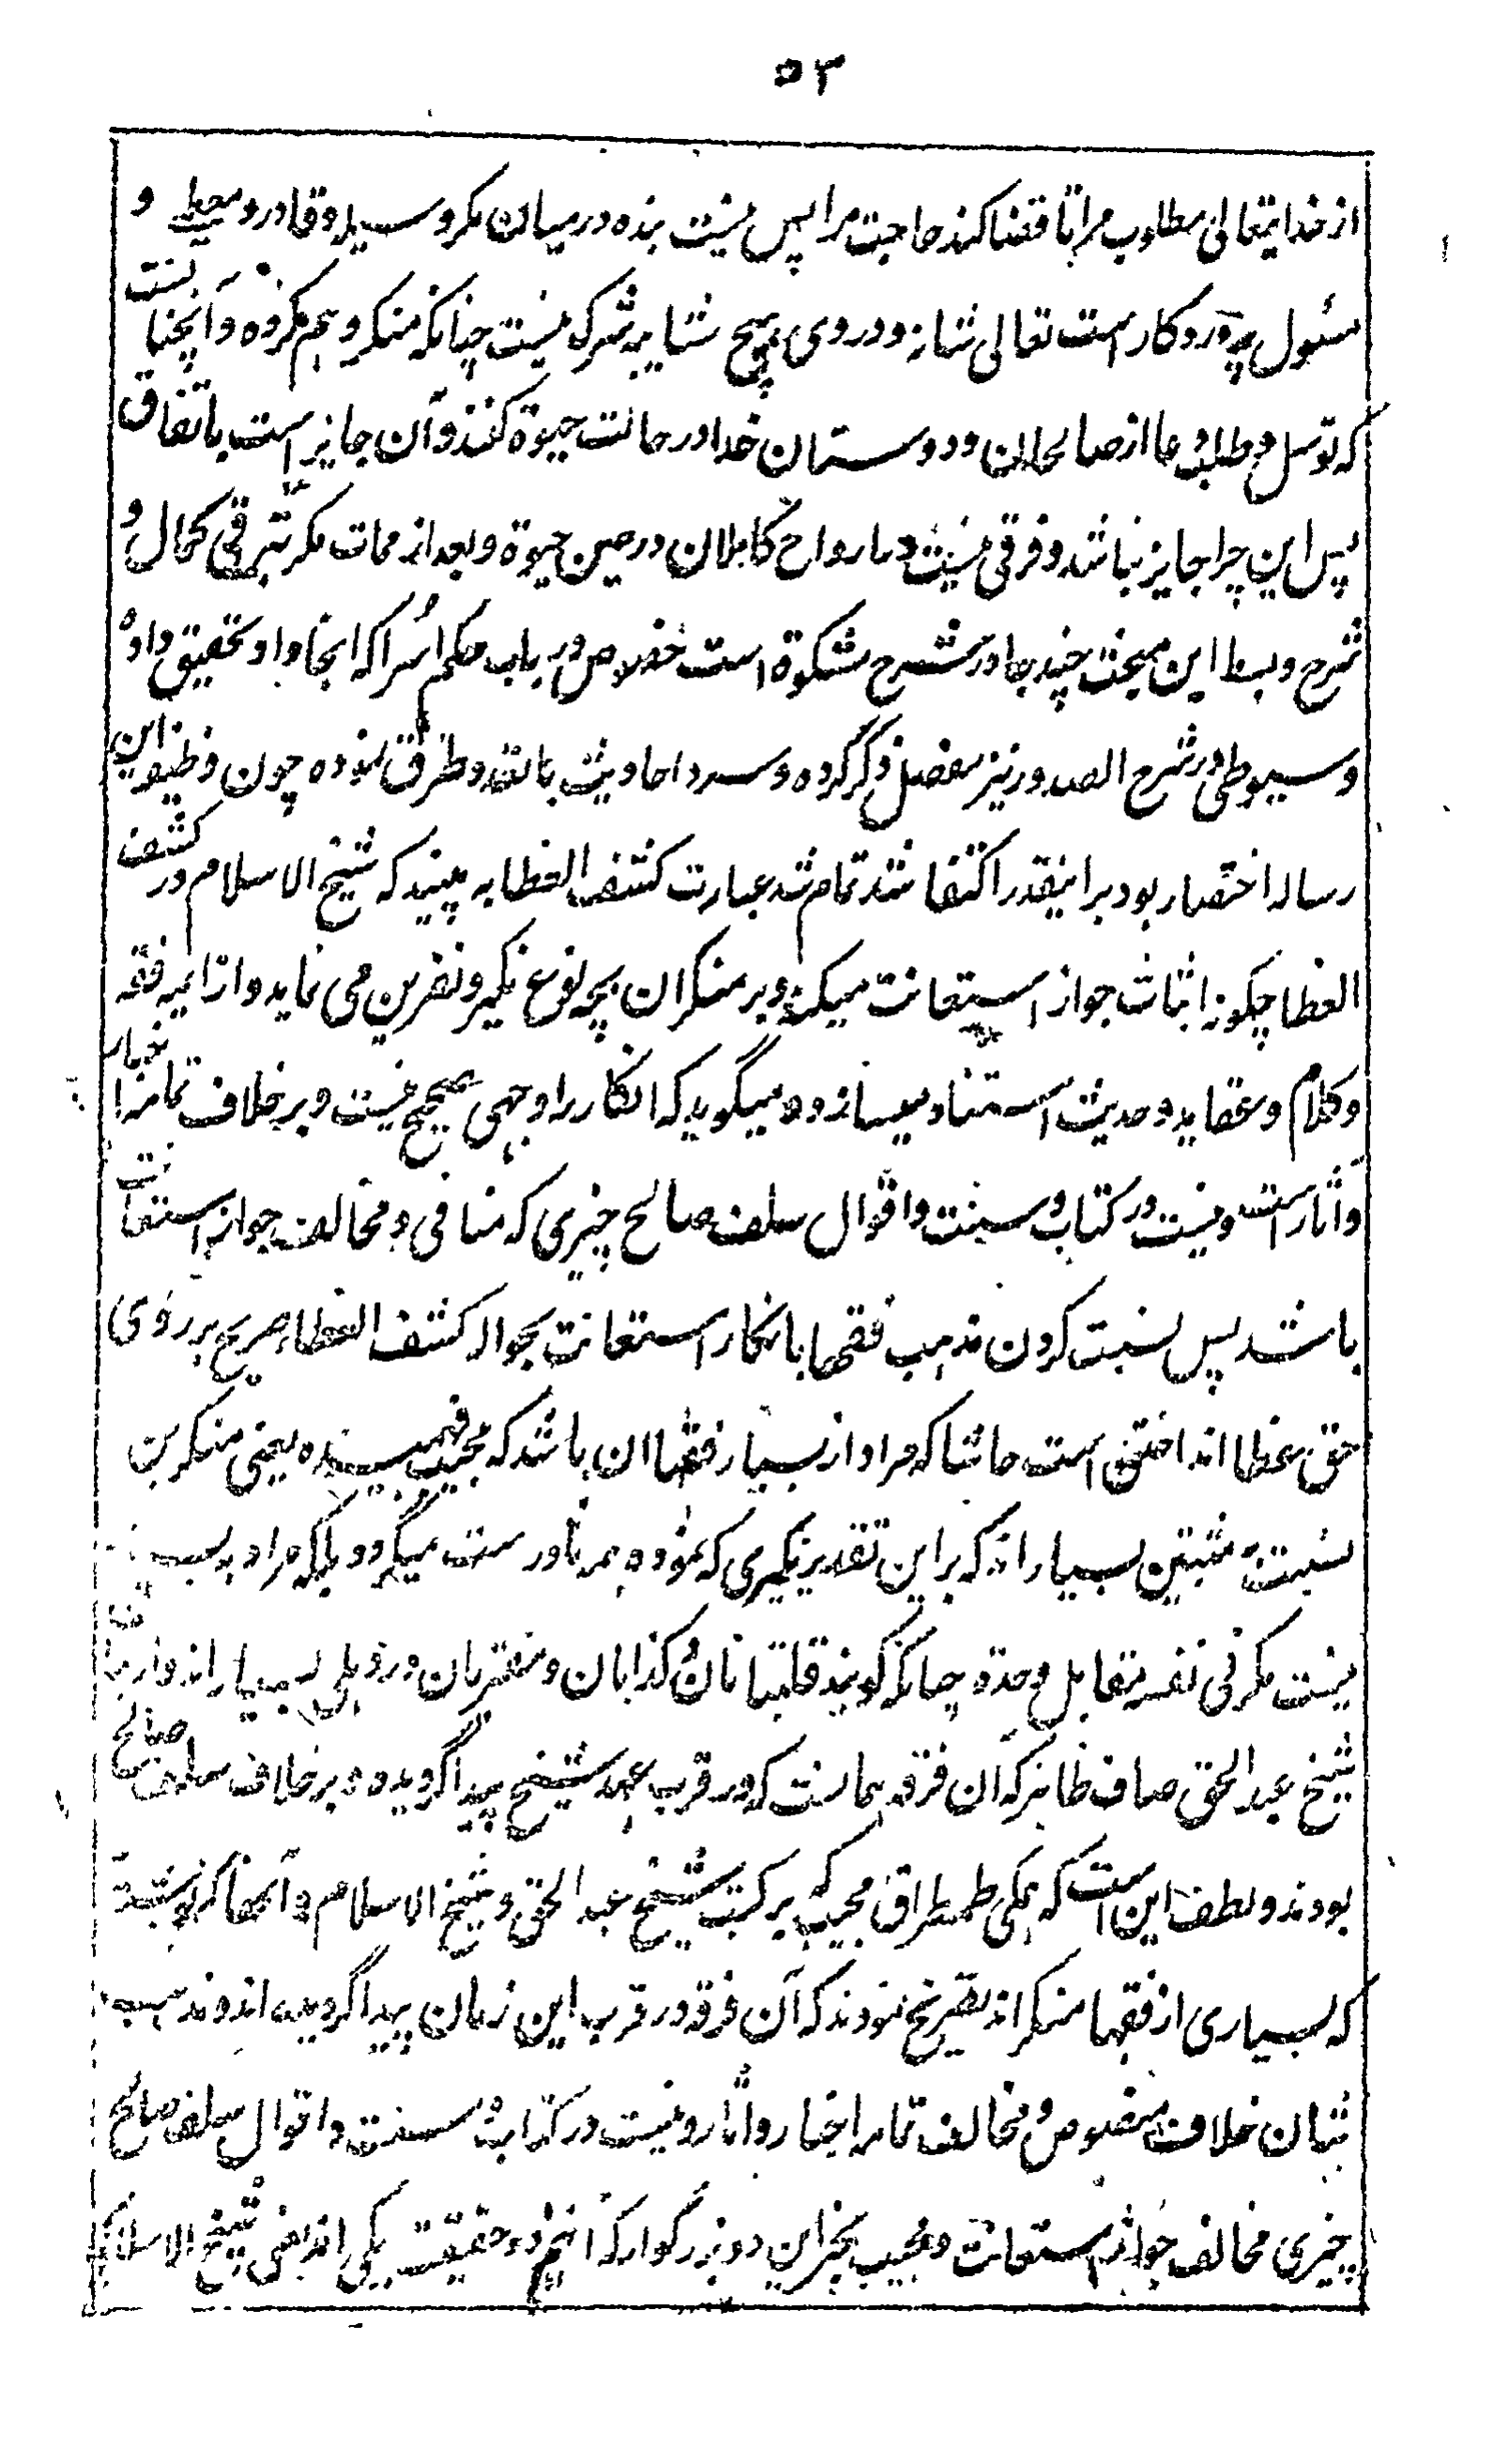 ۵۳
از خدایتعالی مطلوب مرا تا قضا کند حاجت مرا پس نیست بنده درمیان مگر وسیله و قادر و معطی و
مسئول پروردگار است تعالی شانه و در وی هیچ شایبه شرک نیست چنانکه منکر وهم کرده و آنچنانست
که توسل و طلب دعا از صالحان و دوستان خدا در حالت حیوة کنند و آن جایز است باتفاق
پس این چرا جایز نباشد و فرقی نیست در ارواح کاملان در حین حیوة و بعد از ممات مگر بترقی کمال و
شرح و بسط این مبحث چند جا در شرح مشکوة است خصوص در باب حکم اُسرا که انجا داد تحقیق داده
و سیوطی در شرح الصدور نیز مفصل ذکر کرده و سرد احادیث با تعدد طرق نموده چون وظیفه این
رساله اختصار بود بر اینقدر اکتفا شد تمام شد عبارت کشف الغطا به بینید که شیخ الاسلام در کشف
الغطا چگونه اثبات جواز استعانت میکند و بر منکران بچه نوع نکیر و نفرین می نماید و از ائمه فقه
و کلام و عقاید و حدیث استناد میسازد و میگوید که انکار را وجهی صحیح نیست و بر خلاف تمامه اخبار
و آثار است و نیست در کتاب و سنت و اقوال سلف صالح چیزی که منافی و مخالف جواز استعانت
باشد پس نسبت کردن مذهب فقها بانکار استعانت بحواله کشف الغطاء صریح بر روی
حق غطا انداختن است حاشا که مراد از بسیار فقها ان باشد که مجیب فهمیده یعنی منکرین
نسبت مثبتین بسیار اند که بر این تقدیر نکیری که نموده همه نادرست میگردد بلکه مراد به بسیار
نیست مگر فی نفسه مقابل وحدة چنانکه گویند قلتبانان و کذابان و مفتریان در دهلی بسیار اند و از
شیخ عبد الحق صاف ظاهر که آن فرقه همانست که در قرب عهد شیخ پیدا گردیده و بر خلاف سلف صالح
بودند و لطف این است که همگی طمطراق مجیب که بر کتب شیخ عبد الحق و شیخ الاسلام و آنها که نوشته
که بسیاری از فقها منکر اند تصریح نمودند که آن فرقه در قرب این زمان پیدا گردیده اند و مذهب
شان خلاف منصوص و مخالف تمامه اخبار و اثار و نیست در کتاب و سنت و اقوال سلف صالح
چیزی مخالف جواز استعانت و مجیب بجز این دو بزرگوار که آنهم در حقیقت یکی اند یعنی شیخ الاسلام